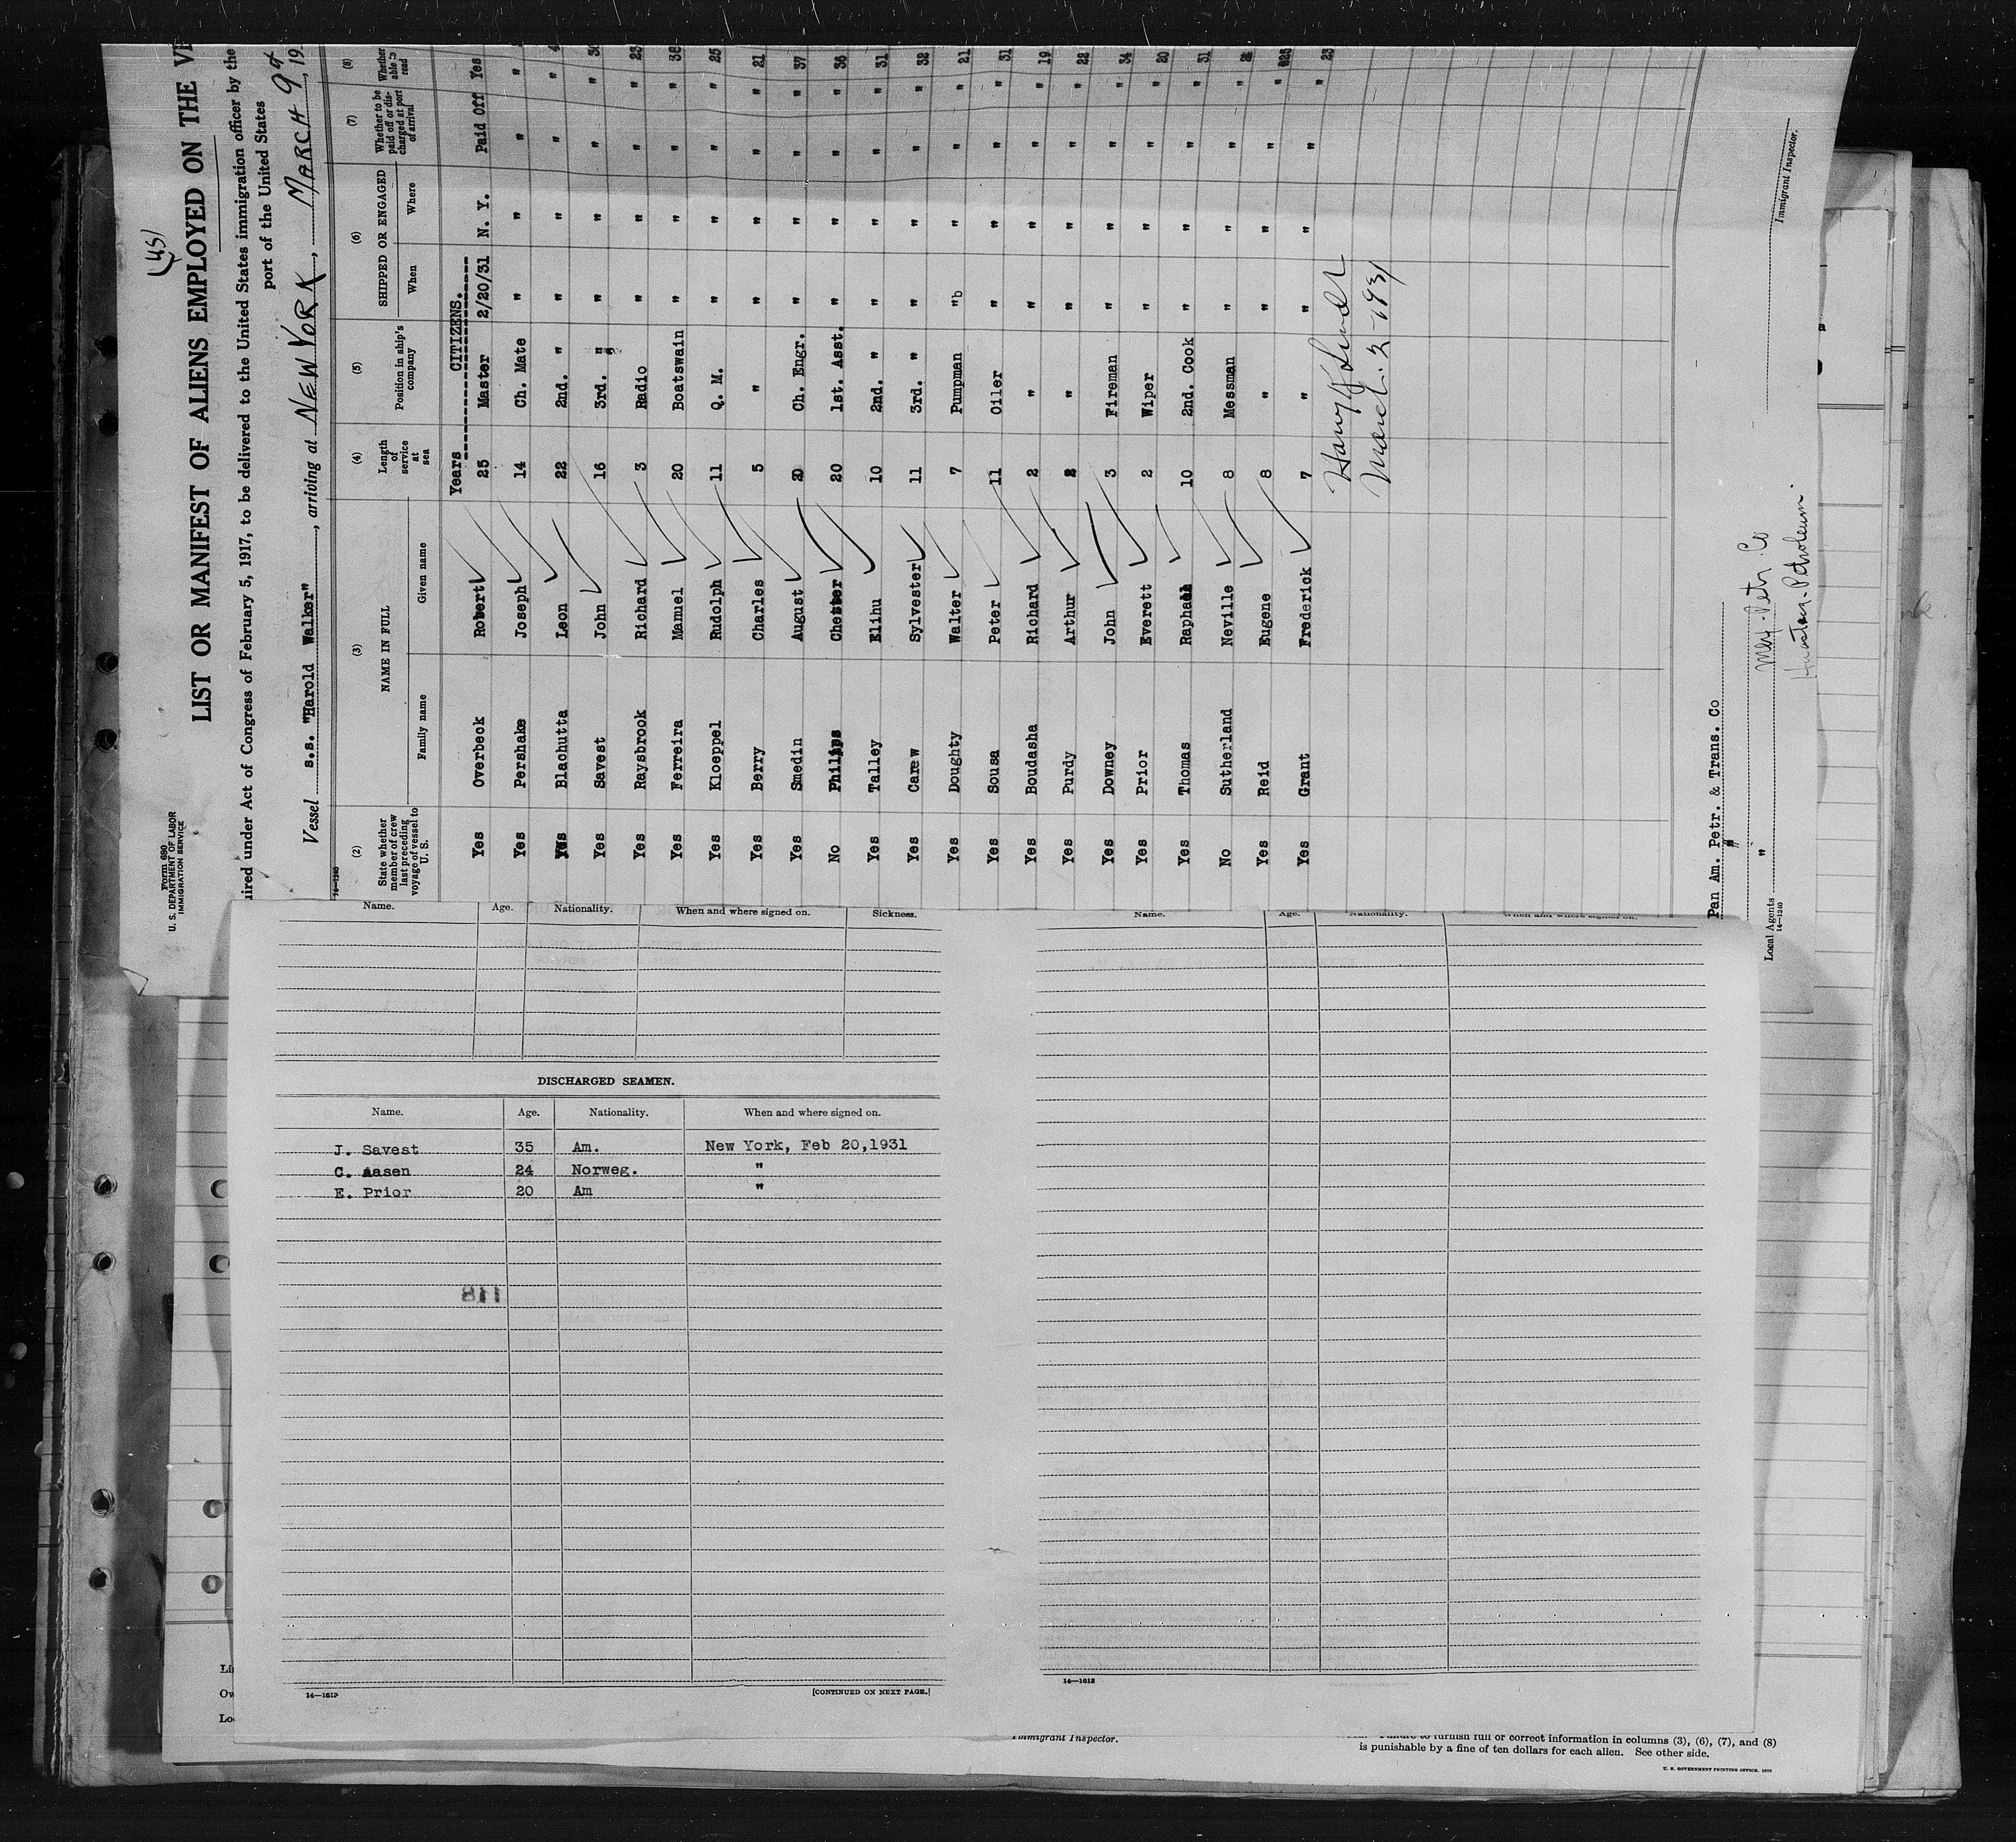 (US)
Form 680
U. S. DEPARTMENT OF LABOR
IMMIGRATION SERVICE
LIST OR MANIFEST OF ALIENS EMPLOYED ON THE
uired under Act of Congress of February 5, 1917, to be delivered to the United States immigration officer by the
port of the United States
Vessel s.s. "Harold Walker", arriving at NEW YORK, MARCH 9th, 19
14—1240
(2) (3) (4) (5) (6) (7) (8)
State whether member of crew last preceding voyage of vessel to U. S.
NAME IN FULL
Family name Given name
Length of service at sea
Position in ship's company
SHIPPED OR ENGAGED
When Where
Whether to be paid off or discharged at port of arrival
Whether able to read
Years CITIZENS.
Yes Overbeck Robert 25 Master 2/20/31 N. Y. Paid Off Yes
Yes Pershake Joseph 14 Ch. Mate " " " "
Yes Blachutta Leon 22 2nd. " " " " " 4
Yes Savest John 16 3rd. " " " " " 3
Yes Raysbrook Richard 3 Radio " " " " 23
Yes Ferreira Manuel 20 Boatswain " " " " 38
Yes Kloeppel Rudolph 11 Q. M. " " " " 25
Yes Berry Charles 5 " " " " " 21
Yes Smedin August 20 Ch. Engr. " " " " 37
No Philips Chester 20 1st. Asst. " " " " 36
Yes Talley Elihu 10 2nd. " " " " " 31
Yes Carew Sylvester 11 3rd. " " " " " 32
Yes Doughty Walter 7 Pumpman "b " " " 21
Yes Sousa Peter 11 Oiler " " " " 31
Yes Boudasha Richard 2 " " " " " 19
Yes Purdy Arthur 2 " " " " " 22
Yes Downey John 3 Fireman " " " " 34
Yes Prior Everett 2 Wiper " " " " 20
Yes Thomas Raphael 10 2nd. Cook " " " " 31
No Sutherland Neville 8 Messman " " " "
Yes Reid Eugene 8 " " " " " 25
Yes Grant Frederick 7 " " " " " 23
March. 2-1931
Pan Am. Petr. & Trans. Co
"
Local Agents " Mex. Petr. Co
Huasteca-Petroleum.
14—1240
Immigrant Inspector.
Name. Age. Nationality. When and where signed on. Sickness.
DISCHARGED SEAMEN.
Name. Age. Nationality. When and where signed on.
J. Savest 35 Am. New York, Feb 20,1931
C. Aasen 24 Norweg. "
E. Prior 20 Am "
14—1613
[CONTINUED ON NEXT PAGE.]
Name. Age. Nationality. When and where signed on.
14—1613
Li
Ow
Lo
Immigrant Inspector.
Failure to furnish full or correct information in columns (3), (6), (7), and (8)
is punishable by a fine of ten dollars for each alien. See other side.
U. S. GOVERNMENT PRINTING OFFICE